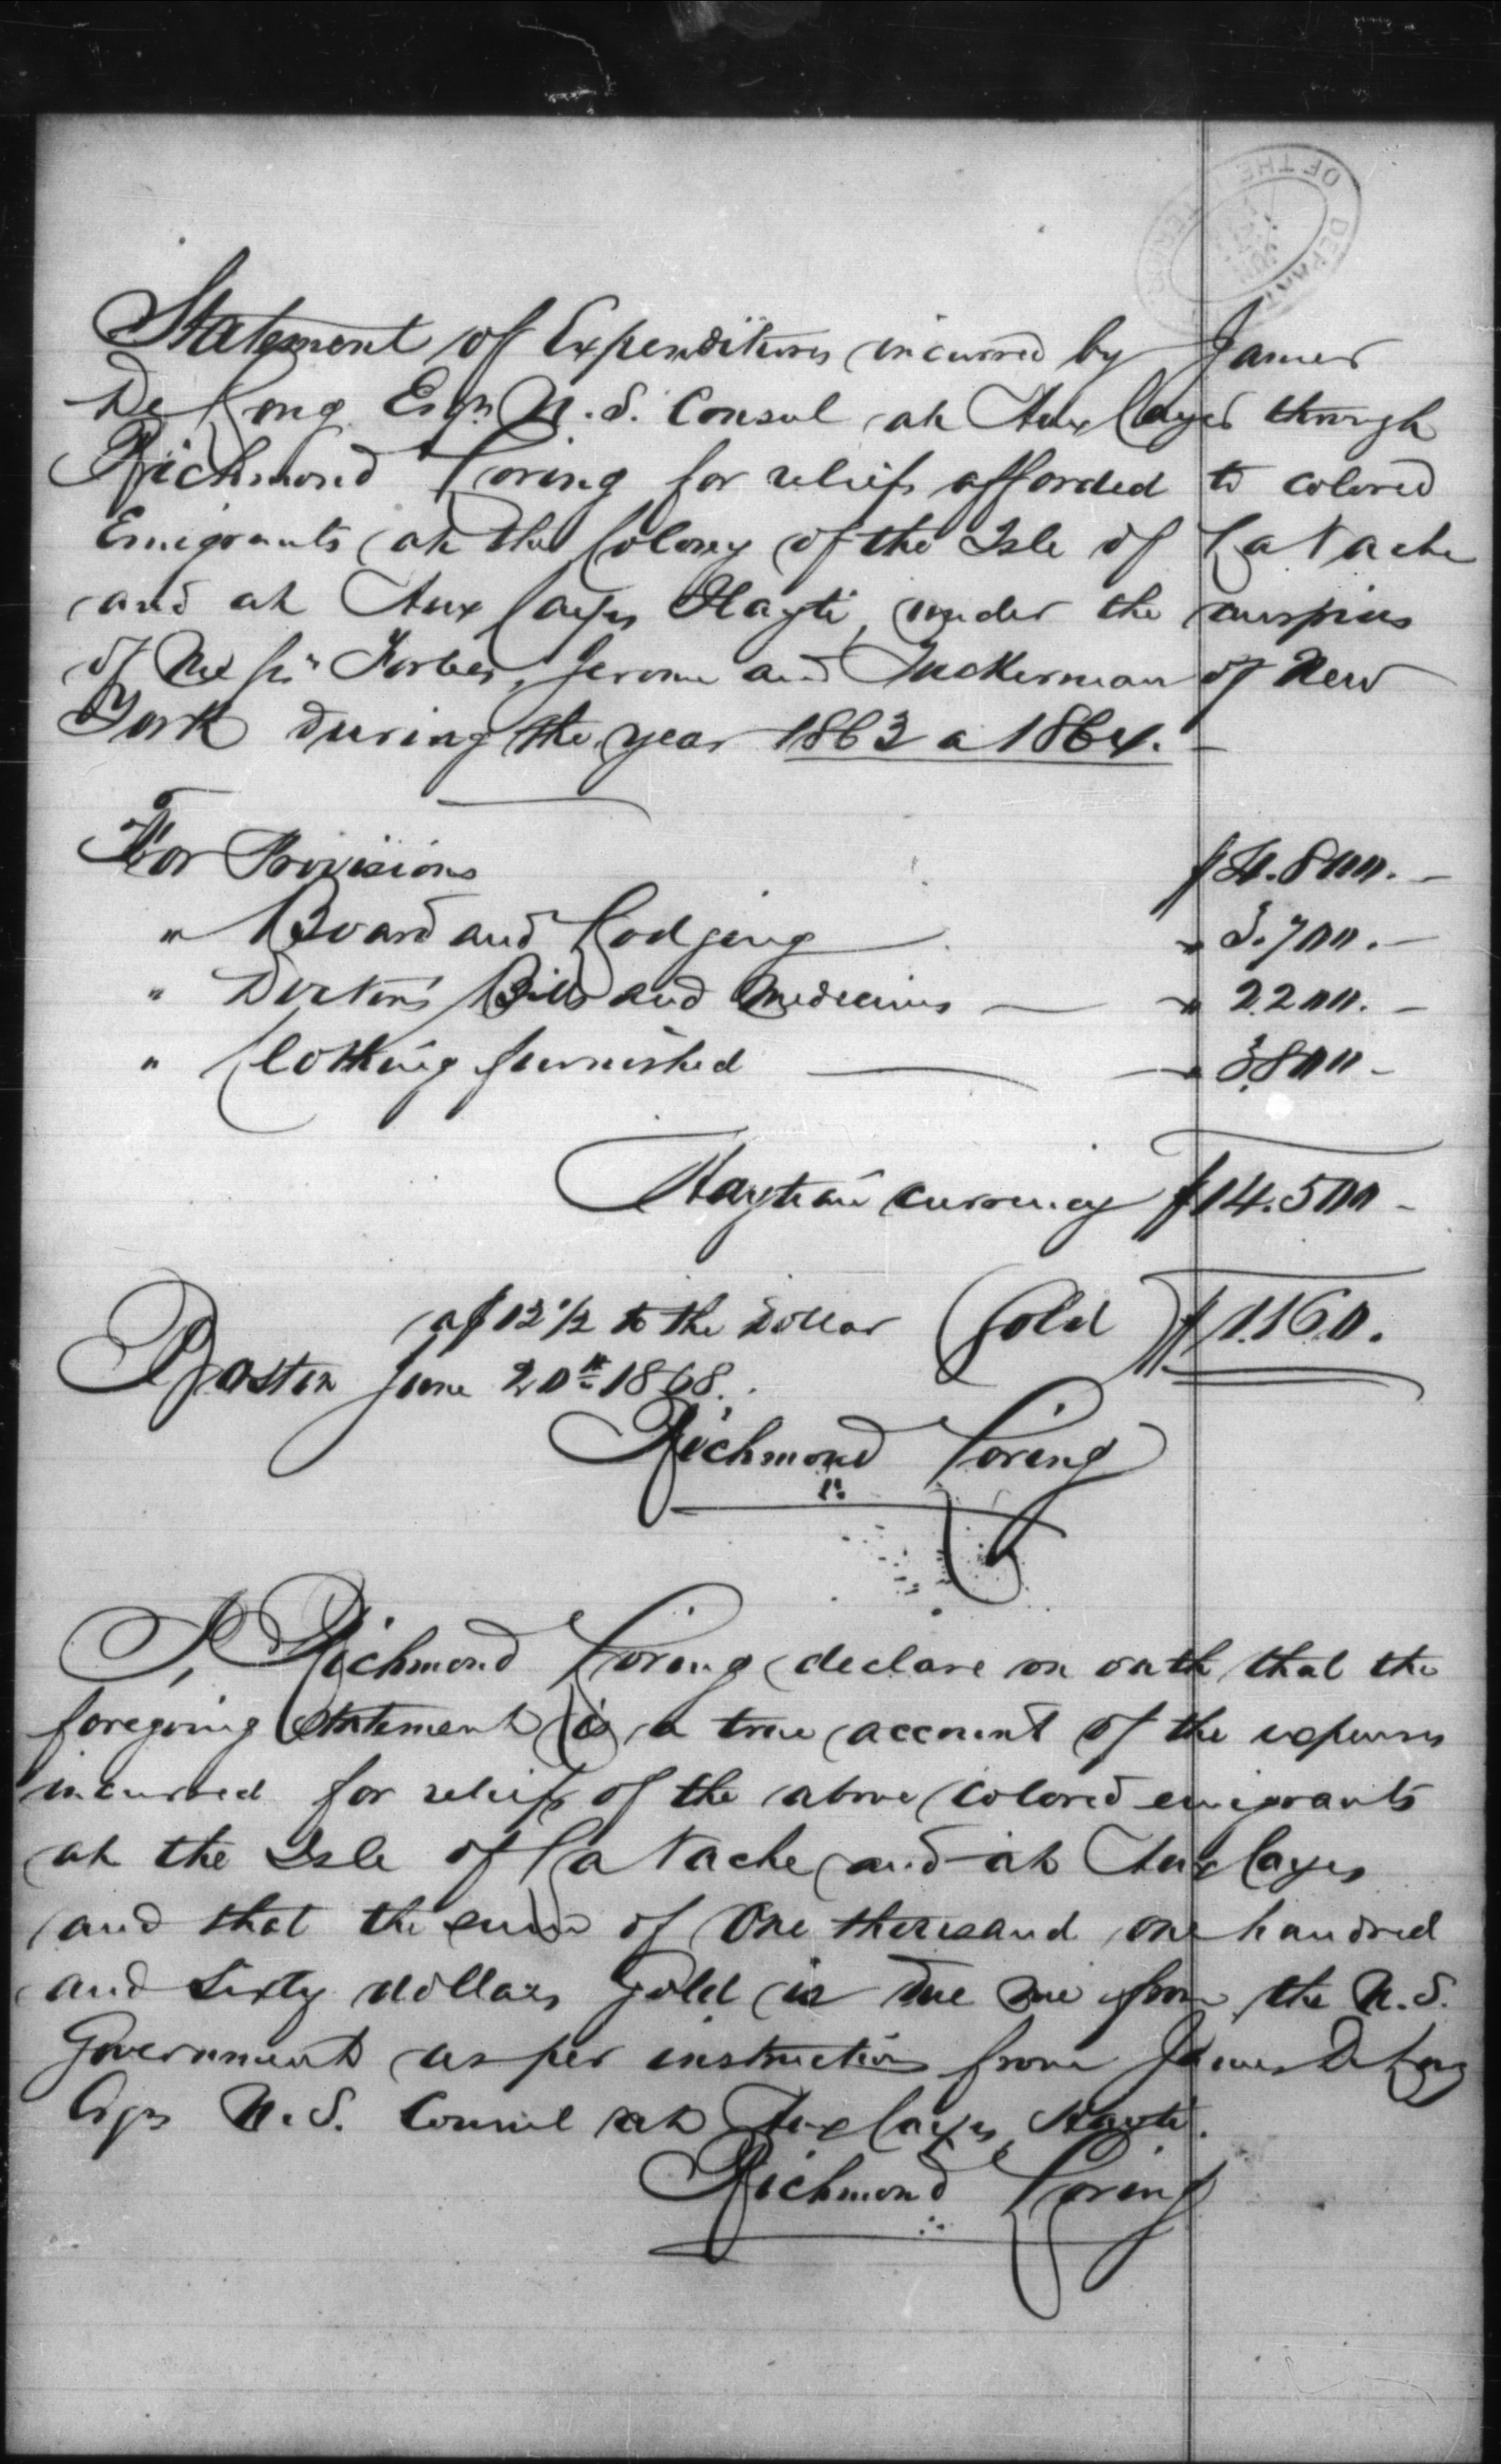 OF THE INTERIOR
DEPART
JUN
Statement of Expenditures incurred by James
De Long Esqr U.S. Consul at Aux Cayes through
Richmond Loring for relief afforded to colored
Emigrants at the Colony of the Isle of La Vache
and at Aux Cayes Hayti, under the auspices
of Messrs Forbes, Jerome and Tuckerman of New
York during the year 1863 a 1864.
For Provisions $4.800.-
" Board and Lodging " 3.700.-
" Doctors' Bills and Medecines " 2.200.-
" Clothing furnished " 3.800-
Haytian currency $14.500-
a $12 1/2 to the Dollar Gold $1.160.
Boston June 20th 1868.
Richmond Loring
I, Richmond Loring declare on oath that the
foregoing statement is a true account of the expenses
incurred for relief of the above colored emigrants
at the Isle of La Vache and at Aux Cayes
and that the sum of One thousand one hundred
and sixty dollars Gold is due me from the U.S.
Government as per instructions from James De Long
Esqr U.S. Consul at Aux Cayes, Hayti.
Richmond Loring